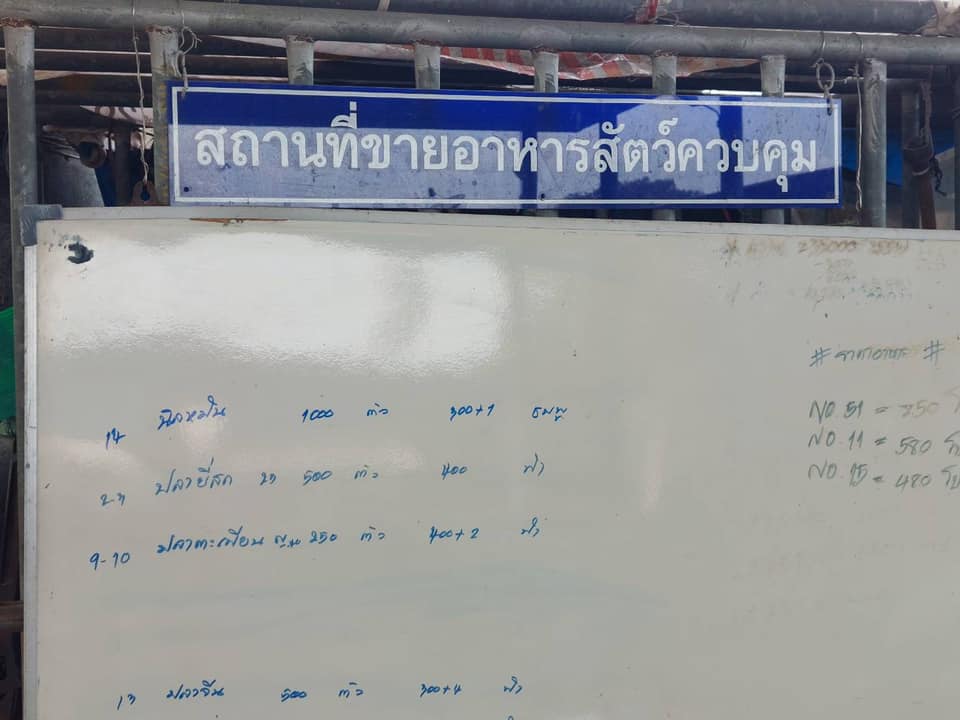 สถานที่ขายอาหารสัตว์ควบคุม
# ราคาอาหาร #
NO.51 = 850
NO.11 = 580
NO.15 = 480
14 นิลหมัน 1000 ตัว 300+1 ชมพู
2-3 ปลายี่สก 500 ตัว 400 ฟ้า
9-10 ปลาตะเพียน 250 ตัว 400+2 ฟ้า
13 ปลาจีน 500 ตัว 300+4 ฟ้า